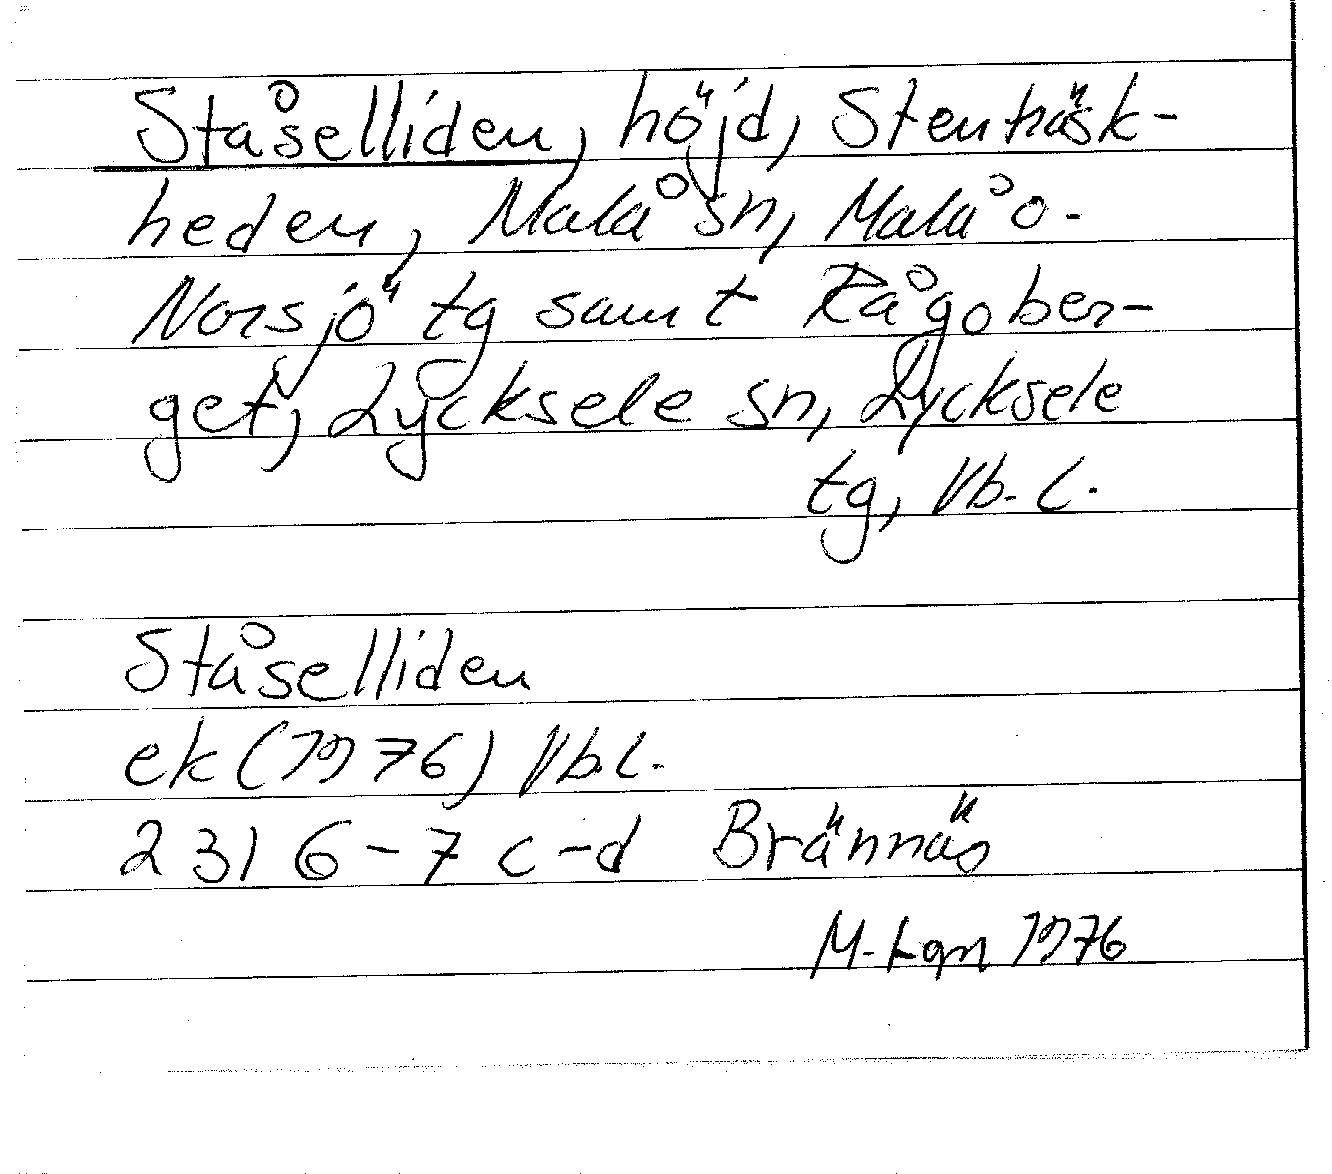 Ståselliden, höjd, Stenträsk-
heden, Malå sn, Malå o.
Norsjö tg samt Rågober-
get, Lycksele sn, Lycksele
tg, Vb. l.
Ståselliden
ek (1976) Vb.l.
2316-7 c-d Brännäs
M-kgn 1976